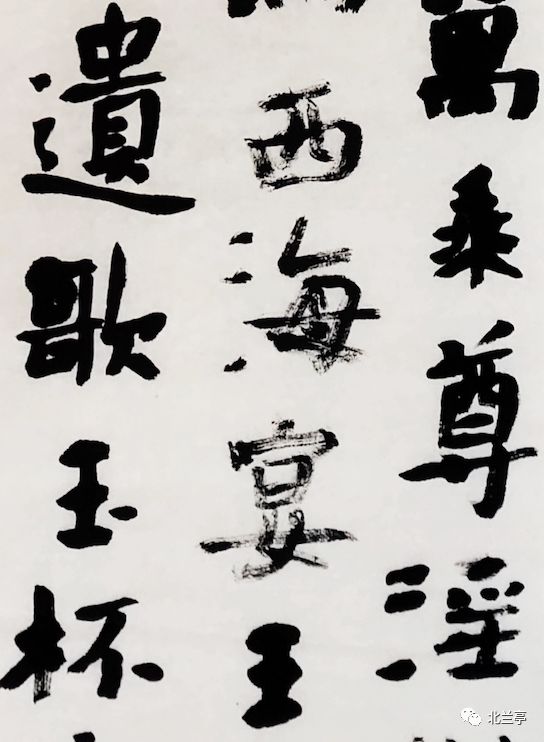 萬乘尊淫
西海宴王
遺歌玉杯
北兰亭